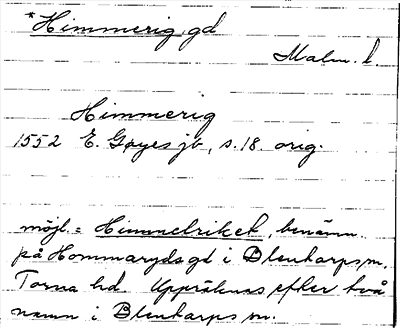 *Himmerig, gd
Malm. l.
Himmerig
1552 E. Gøyes jb, s. 18. orig.
möjl. = Himmelriket, benämn.
på Hommaryds gd i Blentarps sn.
Torna hd. Uppräknas efter två
namn i Blentarps sn.